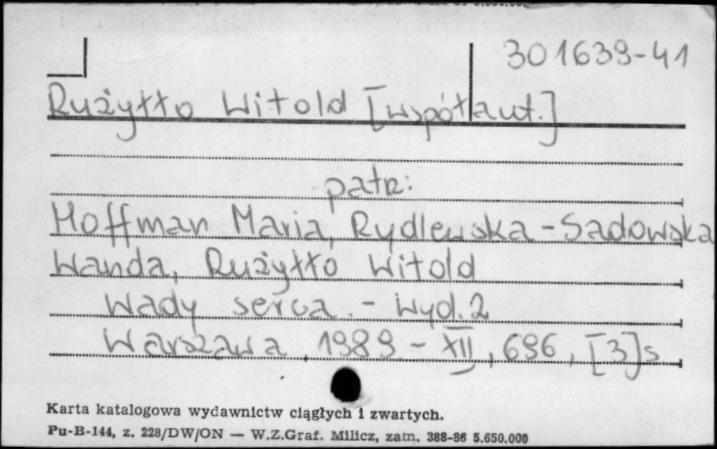 301639-41
Rużyłło Witold [współaut.]
patrz:
Hoffman Maria, Rydlewska-Sadowska
Wanda, Rużyłło Witold
Wady serca. - Wyd. 2
Warszawa 1989 - XII, 696, [3] s
Karta katalogowa wydawnictw ciągłych i zwartych.
Pu-B-144, z. 228/DW/ON — W.Z.Graf. Milicz, zam. 388-86 5.650.000